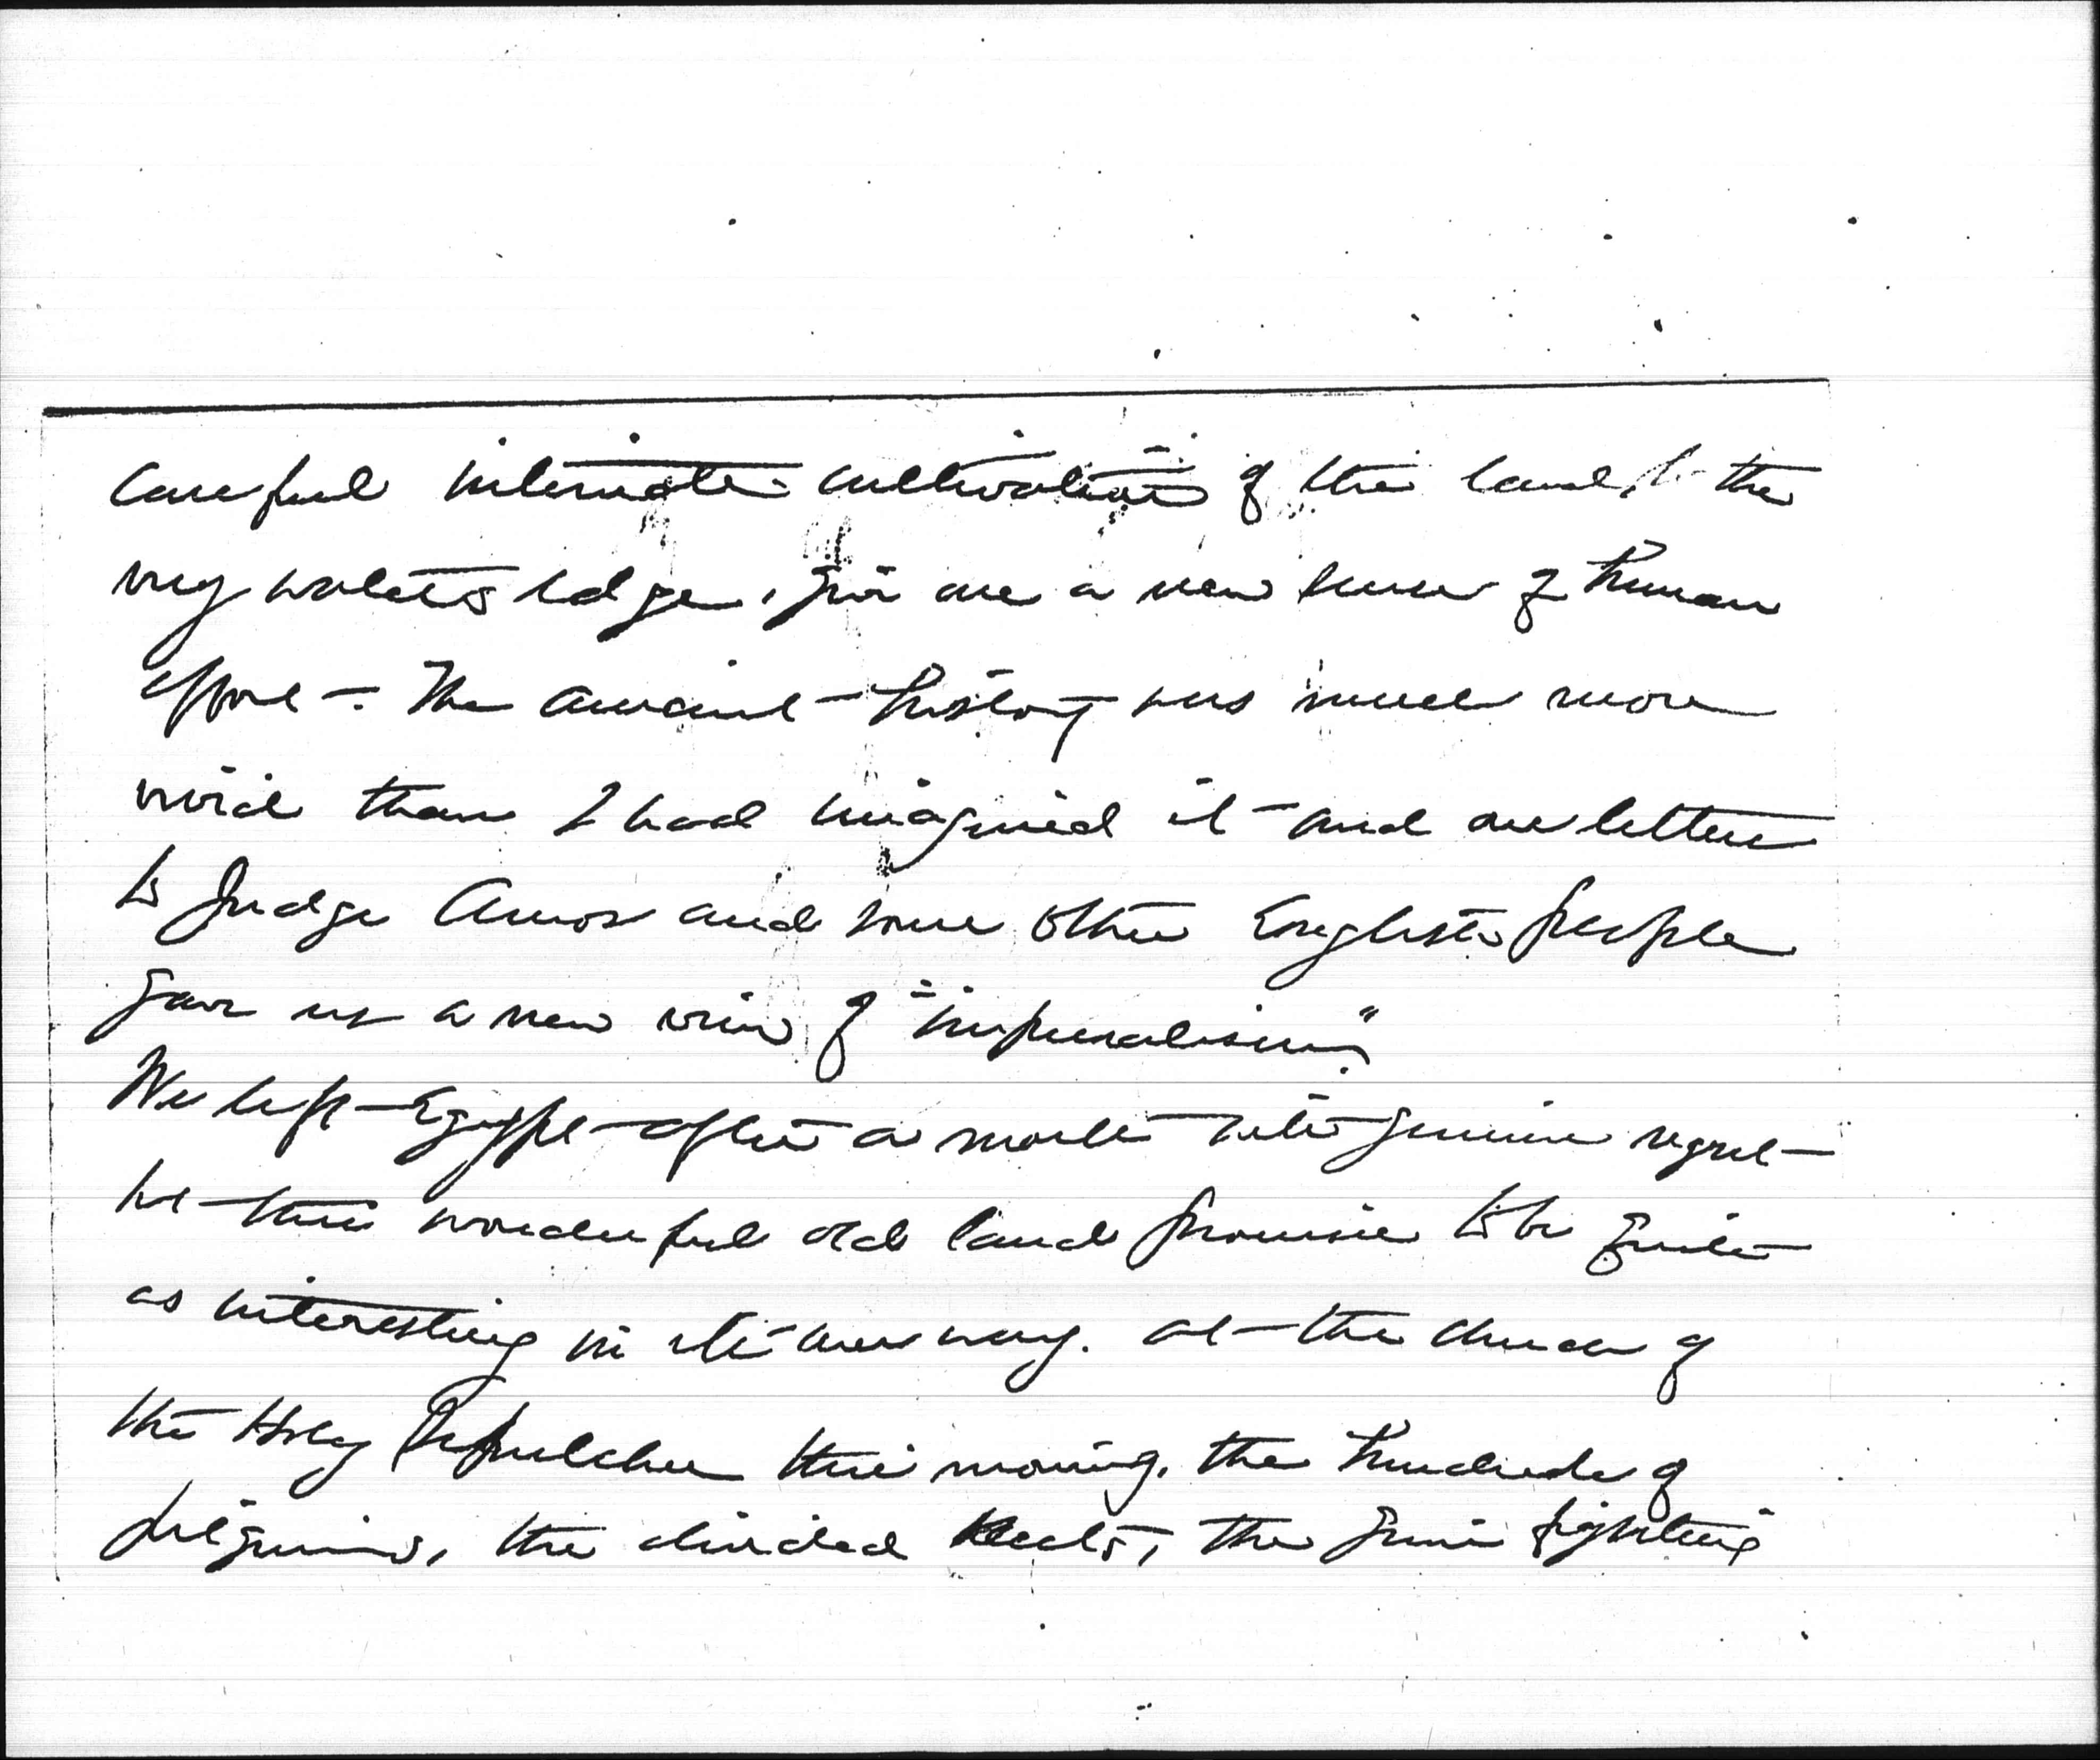 careful intimate cultivation of the land, to the
very waters edge, give one a new sense of human
effort. The ancient history was much more
vivid than I had imagined it and our letters
to Judge Amos and some other English people
gave us a new view of "imperialism".
We left Egypt after a month with genuine regret
but this wonderful old land promises to be quite
as interesting in its own way. at the church of
the Holy Sepulchre this morning, the hundreds of
pilgrims, the divided sects, the fighting